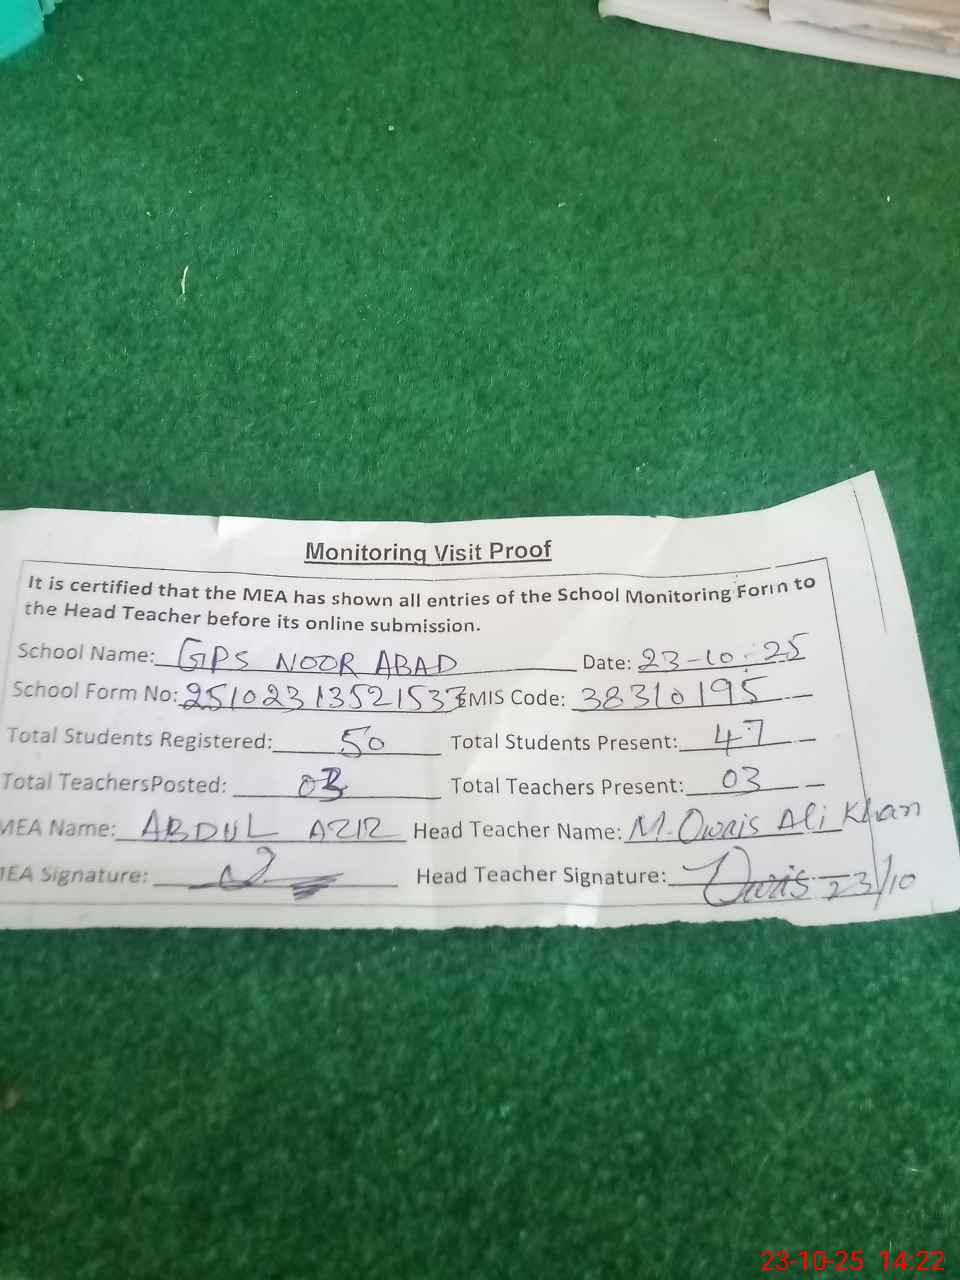 Monitoring Visit Proof
It is certified that the MEA has shown all entries of the School Monitoring Form to
the Head Teacher before its online submission.
School Name: GPS NOOR ABAD Date: 23-10-25
School Form No: 2510231352153 EMIS Code: 38310195
Total Students Registered: 50 Total Students Present: 47
Total TeachersPosted: 03 Total Teachers Present: 03
MEA Name: ABDUL AZIZ Head Teacher Name: M. Owais Ali Khan
MEA Signature: Head Teacher Signature: Owais 23/10
23-10-25 14:22